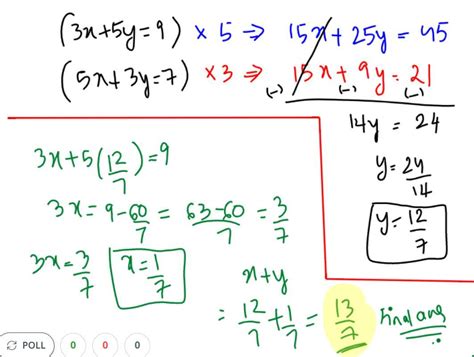 (3x+5y=9) × 5 ⇒ 15x + 25y = 45
(5x+3y=7) ×3 ⇒ 15x + 9y = 21
(-) (-) (-)
14y = 24
y = 24/14
y = 12/7
3x+5(12/7)=9
3x = 9-60/7 = 63-60/7 = 3/7
3x = 3/7 x = 1/7
x+y
= 12/7 + 1/7 = 13/7 Final ans
POLL 0 0 0